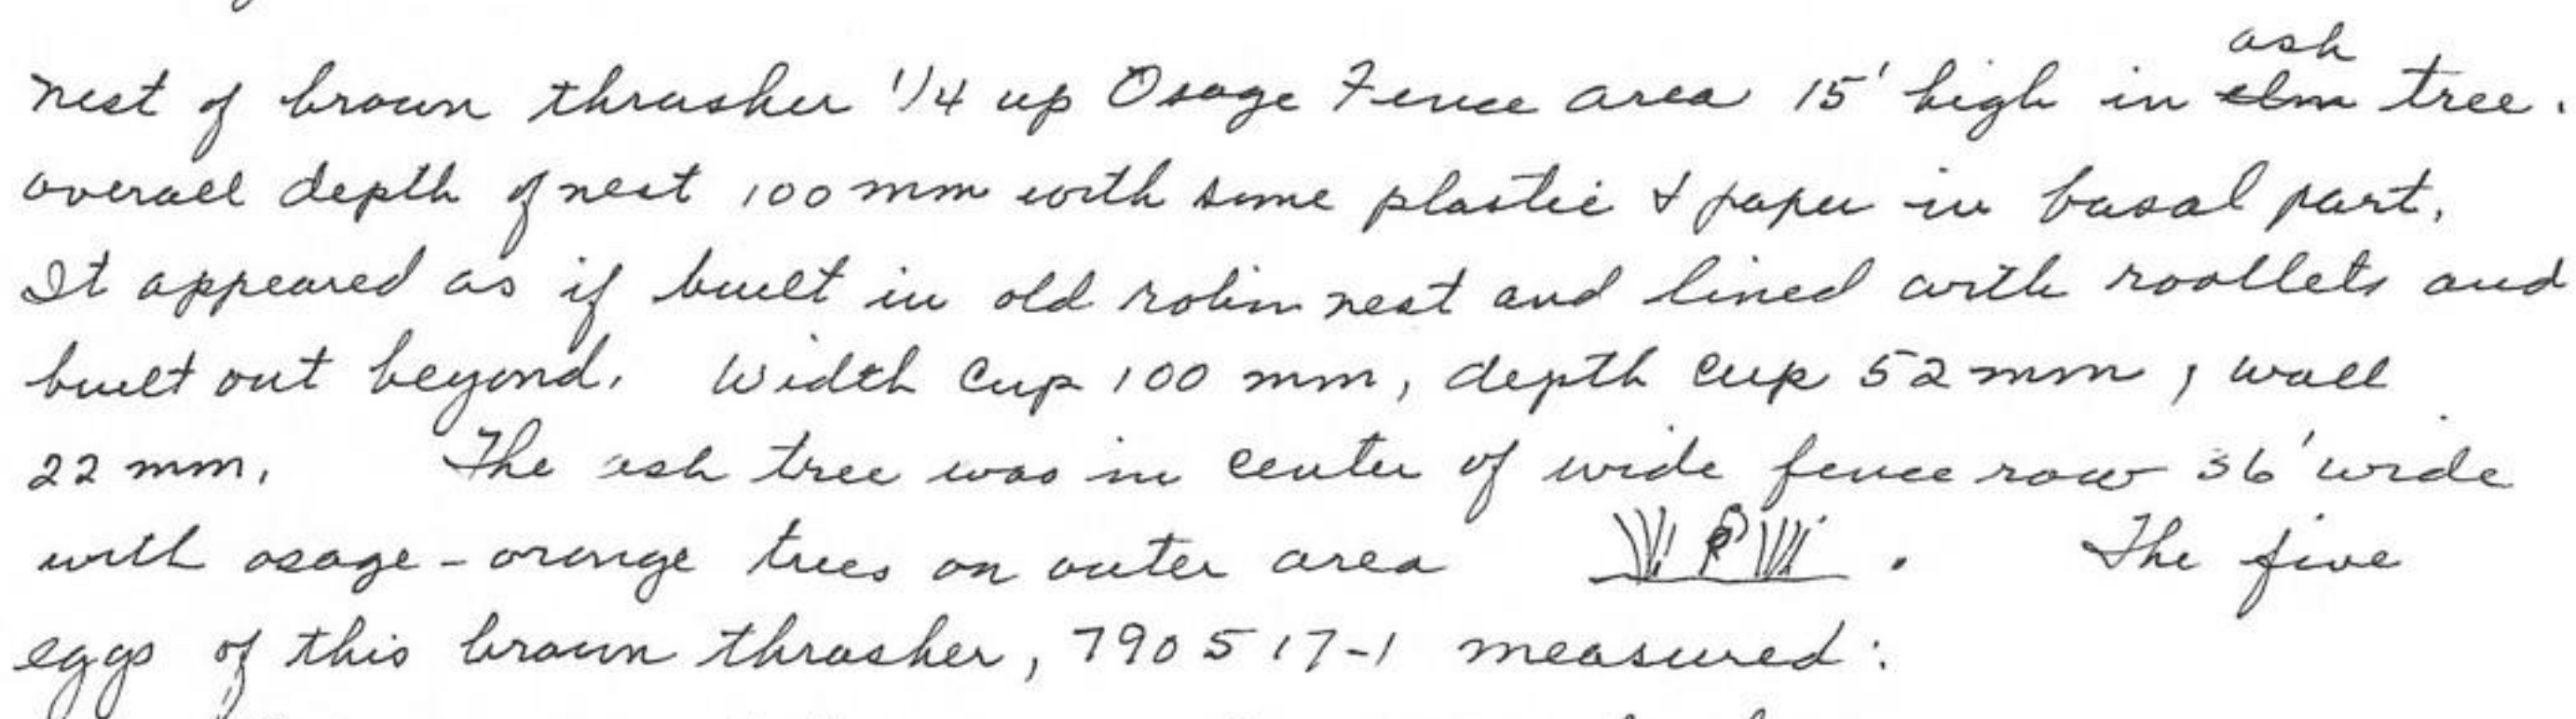 nest of brown thrasher 1/4 up Osage Fence area 15' high in ~~elm~~ ash tree.
overall depth of nest 100 mm with some plastic & paper in basal part.
It appeared as if built in old robin nest and lined with roollets and
built out beyond. Width cup 100 mm, depth cup 52 mm, wall
22 mm. The ash tree was in center of wide fence row 36' wide
with osage-orange trees on outer area . The five
eggs of this brown thrasher, 790517-1 measured: